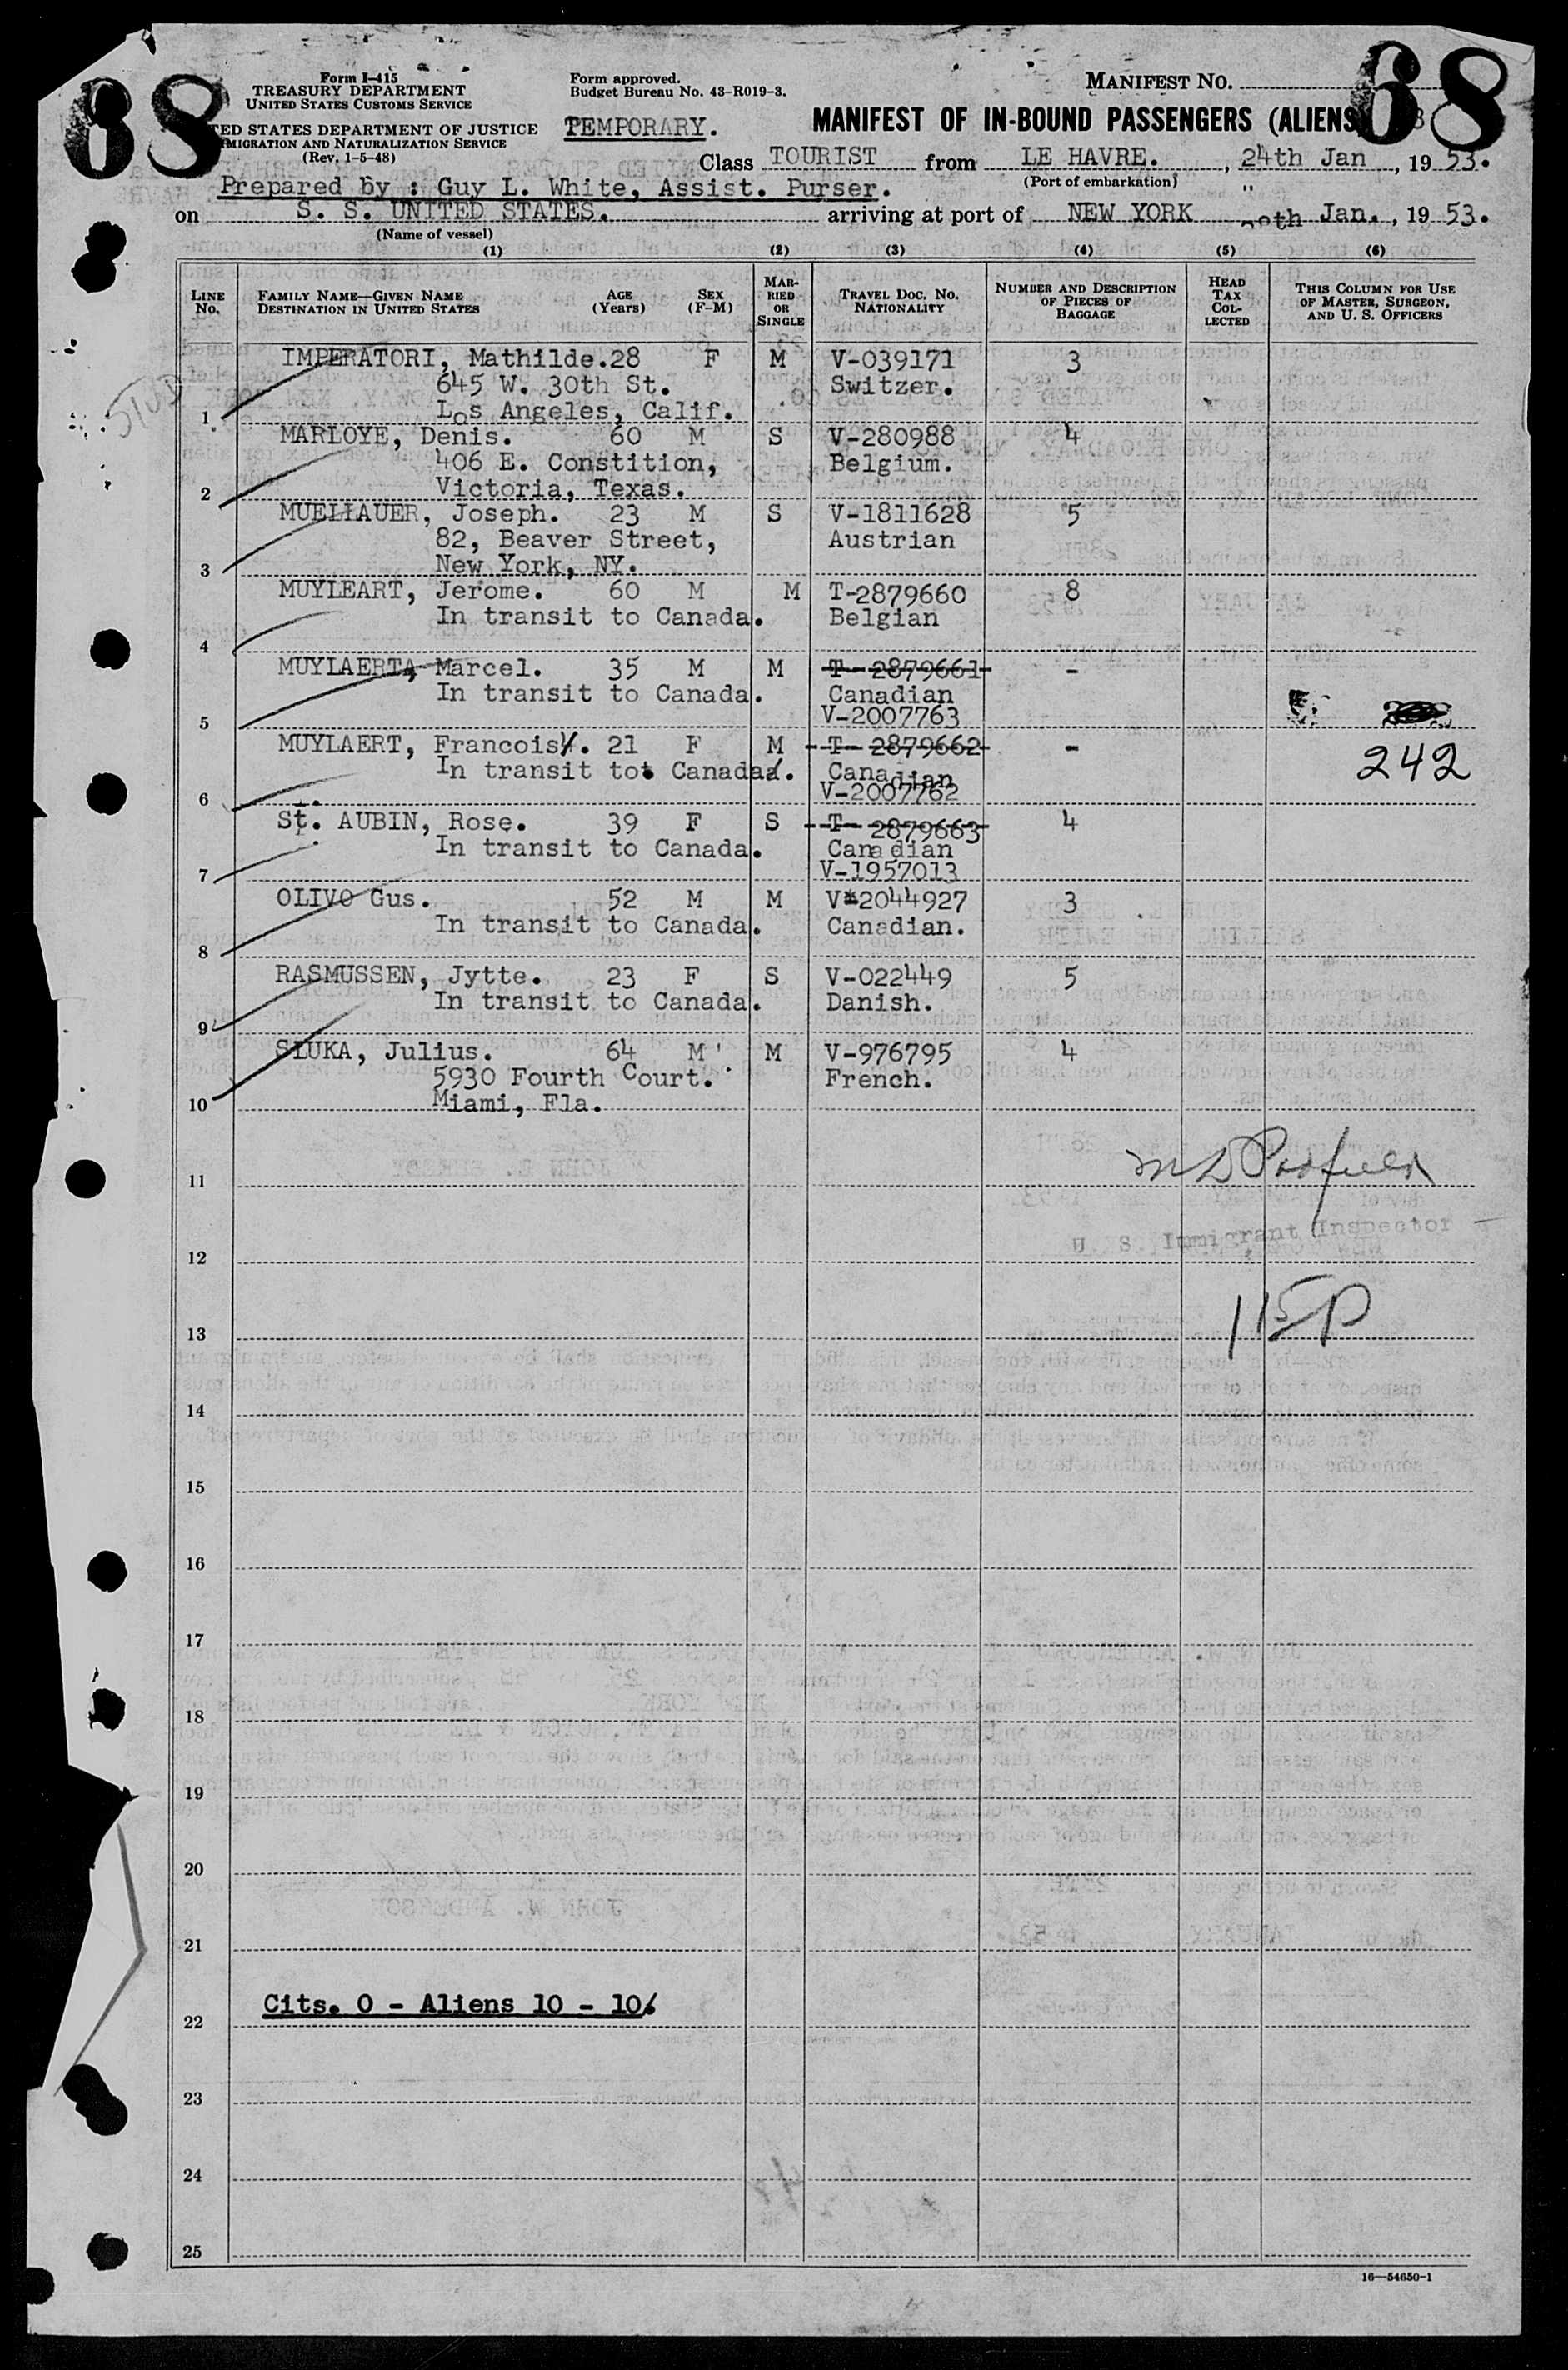 68
68
Form I-415
TREASURY DEPARTMENT
UNITED STATES CUSTOMS SERVICE
TED STATES DEPARTMENT OF JUSTICE
MIGRATION AND NATURALIZATION SERVICE
(Rev. 1-5-48)
Form approved.
Budget Bureau No. 43-R019-3.
TEMPORARY.
MANIFEST NO.
MANIFEST OF IN-BOUND PASSENGERS (ALIENS
Class TOURIST from LE HAVRE. , 24th Jan , 19 53.
(Port of embarkation)
Prepared by : Guy L. White, Assist. Purser. "
on S. S. UNITED STATES. arriving at port of NEW YORK Jan. , 19 53.
(Name of vessel)
(1) (2) (3) (4) (5) (6)
LINE No. FAMILY NAME—GIVEN NAME DESTINATION IN UNITED STATES AGE (Years) SEX (F-M) MARRIED OR SINGLE TRAVEL DOC. NO. NATIONALITY NUMBER AND DESCRIPTION OF PIECES OF BAGGAGE HEAD TAX COLLECTED THIS COLUMN FOR USE OF MASTER, SURGEON, AND U. S. OFFICERS
STUD
IMPERATORI, Mathilde. 28 F M V-039171 3
645 W. 30th St. Switzer.
1 Los Angeles, Calif.
MARLOYE, Denis. 60 M S V-280988 4
406 E. Constition, Belgium.
2 Victoria, Texas.
MUELLAUER, Joseph. 23 M S V-1811628 5
82, Beaver Street, Austrian
3 New York, NY.
MUYLEART, Jerome. 60 M M T-2879660 8
In transit to Canada. Belgian
4
MUYLAERT, Marcel. 35 M M T-2879661 -
In transit to Canada. Canadian
5 V-2007763
MUYLAERT, Francois. 21 F M T-2879662 -
In transit to Canada. Canadian 242
6 V-2007762
St. AUBIN, Rose. 39 F S T-2879663 4
In transit to Canada. Canadian
7 V-1957013
OLIVO Gus. 52 M M V-2044927 3
In transit to Canada. Canadian.
8
RASMUSSEN, Jytte. 23 F S V-022449 5
In transit to Canada. Danish.
9
SLUKA, Julius. 64 M M V-976795 4
5930 Fourth Court. French.
10 Miami, Fla.
11
U S Immigrant Inspector
12
115P
13
14
15
16
17
18
19
20
21
Cits. 0 - Aliens 10 - 10.
22
23
24
25
16—54650-1